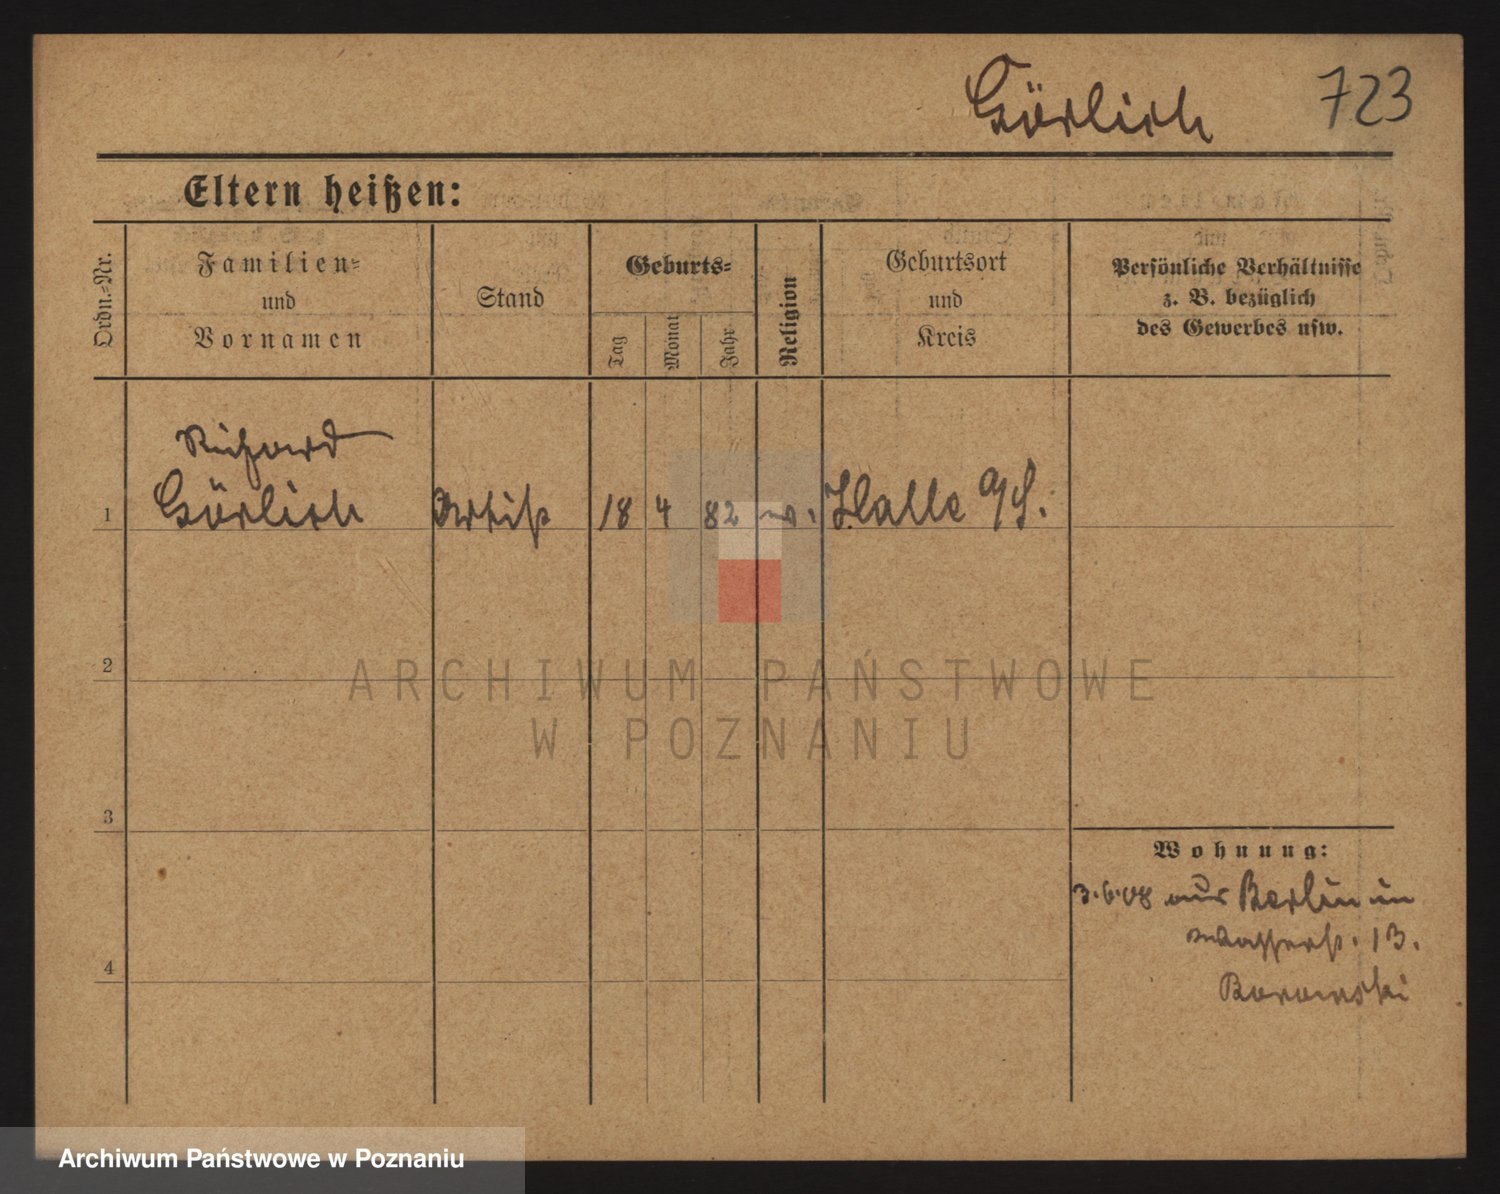 Görlich 723
Eltern heißen:
Ordn.-Nr.
Familien-
und
Vornamen
Stand
Geburts-
Tag
Monat
Jahr
Religion
Geburtsort
und
Kreis
Persönliche Verhältnisse
z. B. bezüglich
des Gewerbes usw.
Richard
1 Görlich Artist 18 4 82 Halle a/S.
2
ARCHIWUM PAŃSTWOWE
W POZNANIU
3
Wohnung:
3.6.08 aus Berlin in
Wasserst. 13.
4
Borowski
Archiwum Państwowe w Poznaniu